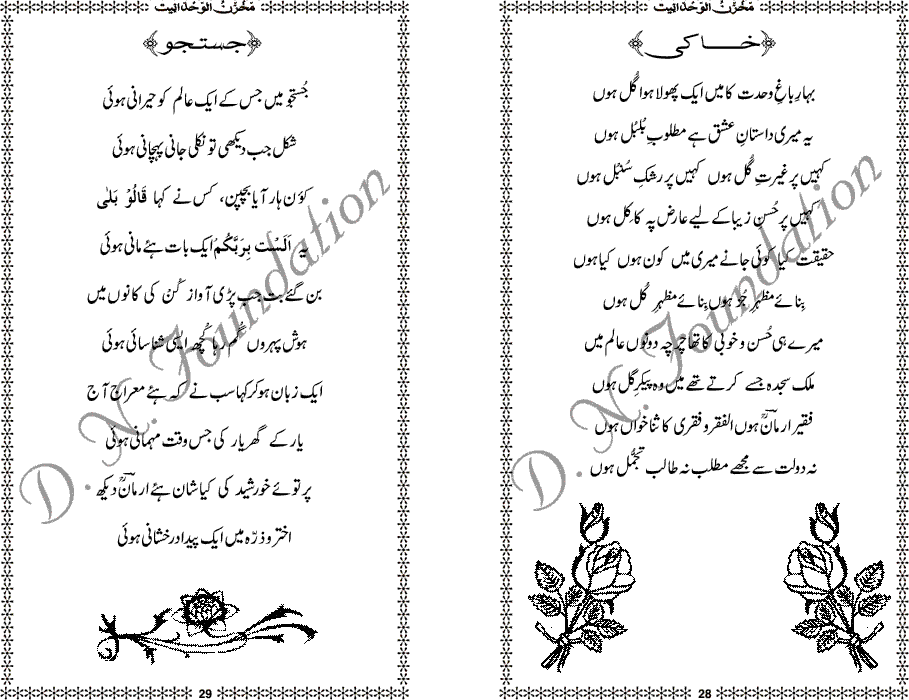 مخزن الوحدانیت
خاکی
بہارِ باغِ وحدت کا میں ایک پھولا ہوا گُل ہوں
یہ میری داستانِ عشق ہے مطلوبِ بُلبُل ہوں
کہیں پر غیرتِ گُل ہوں کہیں پر رشکِ سُنبُل ہوں
کہیں پر حُسنِ زیبا کے لیے عارض پہ کاکل ہوں
حقیقت کیا کوئی جانے میری میں کون ہوں کیا ہوں
بِنائے مظہرِ جُز ہوں بِنائے مظہرِ گل ہوں
میرے ہی حُسن و خوبی کا تھا چرچہ دونوں عالم میں
ملک سجدہ جسے کرتے تھے میں وہ پیکرِ گِل ہوں
فقیر ارمانؔ ہوں الفقرو فقری کا ثنا خواں ہوں
نہ دولت سے مجھے مطلب نہ طالب تجمُّل ہوں
28
مخزن الوحدانیت
جستجو
جُستجو میں جس کے ایک عالم کو حیرانی ہوئی
شکل جب دیکھی تو نکلی جانی پہچانی ہوئی
کؤن ہار آیا بچپن، کس نے کہا قَالُوْ بَلٰی
یہ اَلَسْت بِرَبِّکُمْ ایک بات ہئے مانی ہوئی
بن گئے بت جب پڑی آواز کُنْ کی کانوں میں
ہوش پہروں گُم رہا کُچھ ایسی شناسائی ہوئی
ایک زبان ہوکر کہا سب نے کہ ہئے معراج آج
یار کے گھر یار کی جس وقت مہمانی ہوئی
پر توئے خورشید کی کیا شان ہئے ارمانؔ دیکھ
اختر و ذرّہ میں ایک پیدا درخشانی ہوئی
29
D. N. Foundation
D. N. Foundation